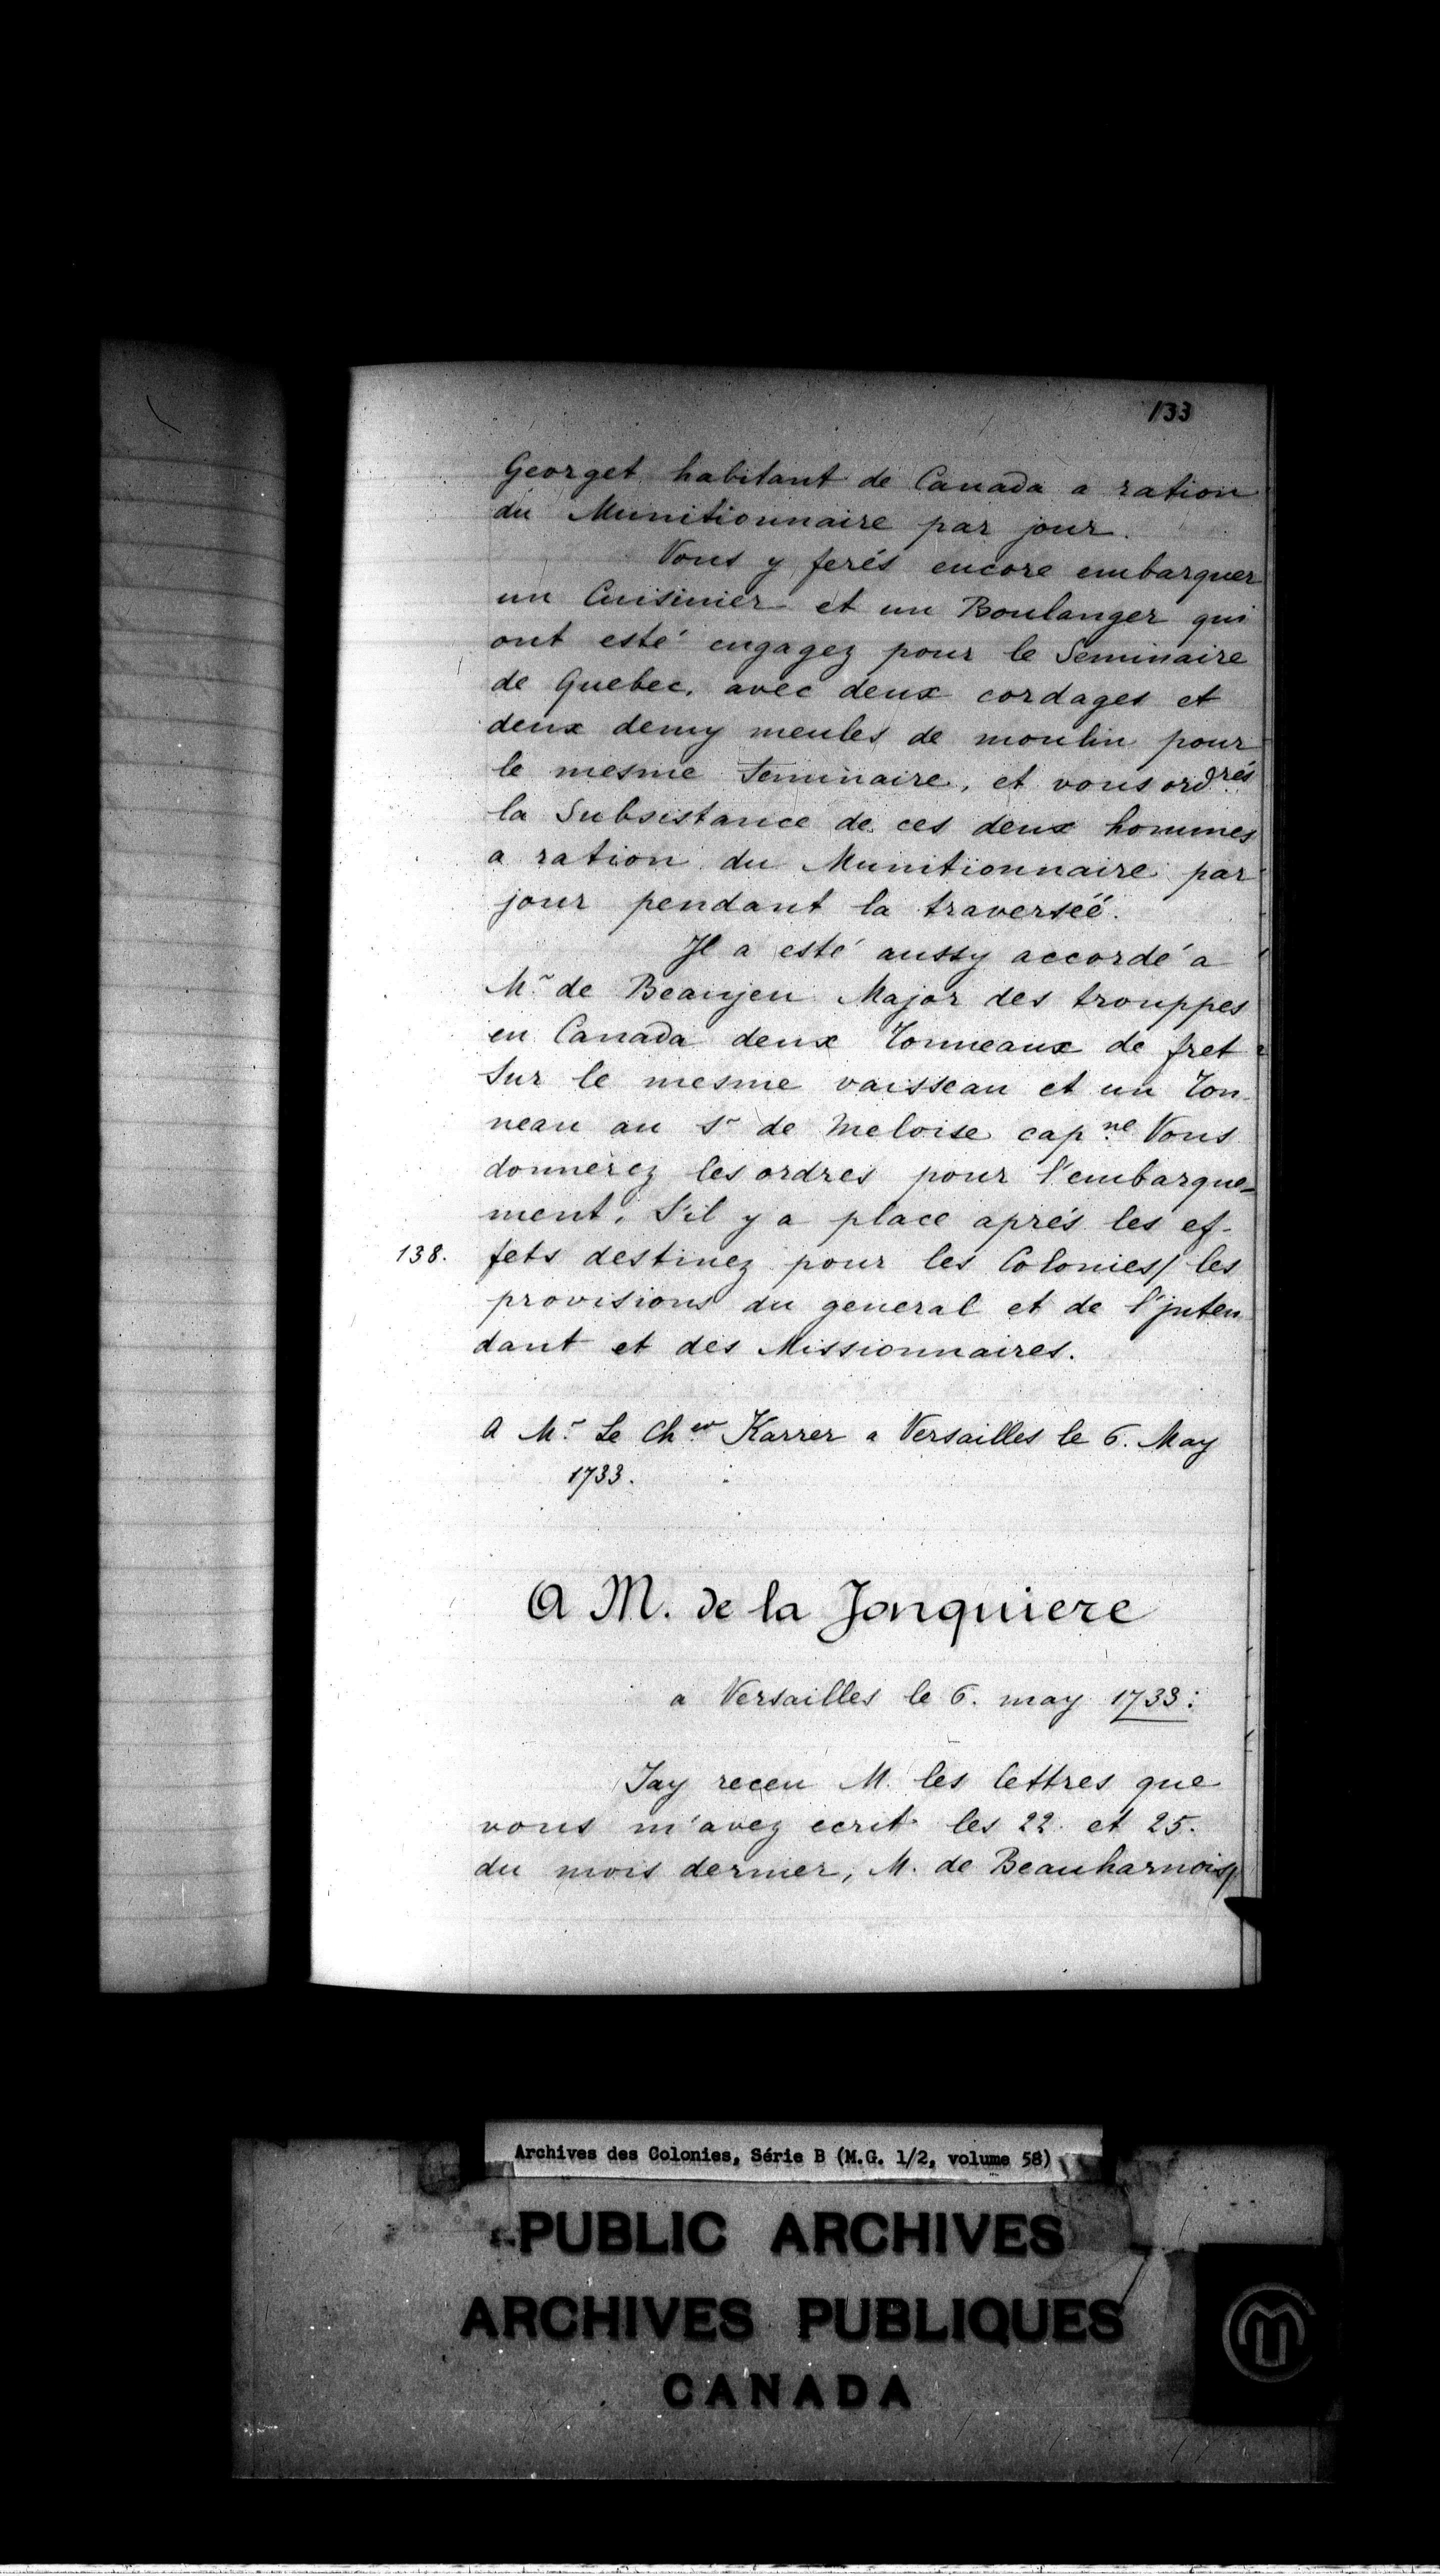 133
Georget habitant de Canada a ration
du Munitionnaire par jour.
Vous y ferés encore embarquer
un Cuisinier et un Boulanger qui
ont esté engagez pour le Seminaire
de Quebec, avec deux cordages et
deux demy meules de moulin pour
le mesme Seminaire, et vous ordrés
la Subsistance de ces deux hommes
a ration du Munitionnaire par
jour pendant la traverseé.
Jl a esté aussy accordé a
Mr de Beaujeu Major des trouppes
en Canada deux Tonneaux de fret
Sur le mesme vaisseau et un Ton-
neau au Sr de Meloise capne Vous
donnerez les ordres pour l'embarque-
ment, S'il y a place aprés les ef-
138. fets destinez pour les Colonies/ les
provisions du general et de l'jnten
dant et des Missionnaires.
A Mr Le Cher Karrer a Versailles le 6. May
1733.
A M. de la Jonquiere
a Versailles le 6. may 1733:
Jay receu M. les lettres que
vous m'avez ecrit les 22. et 25.
du mois dernier, M. de Beauharnois/
Archives des Colonies, Série B (M.G. 1/2, volume 58)
PUBLIC ARCHIVES
ARCHIVES PUBLIQUES
CANADA